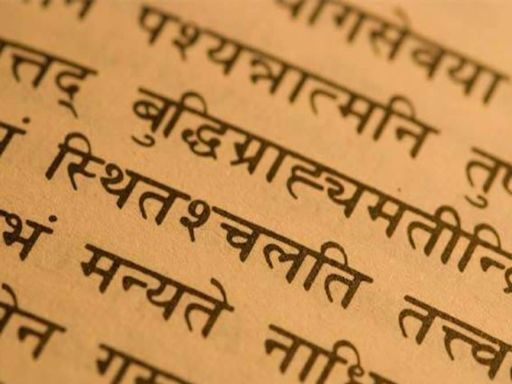 योगसेवया
पश्यन्नात्मनि तु
त्तद् बुद्धिग्राह्यमतीन्द्रि
ं स्थितश्चलति तत्त्व
भं मन्यते नाधि
ेन गुरु